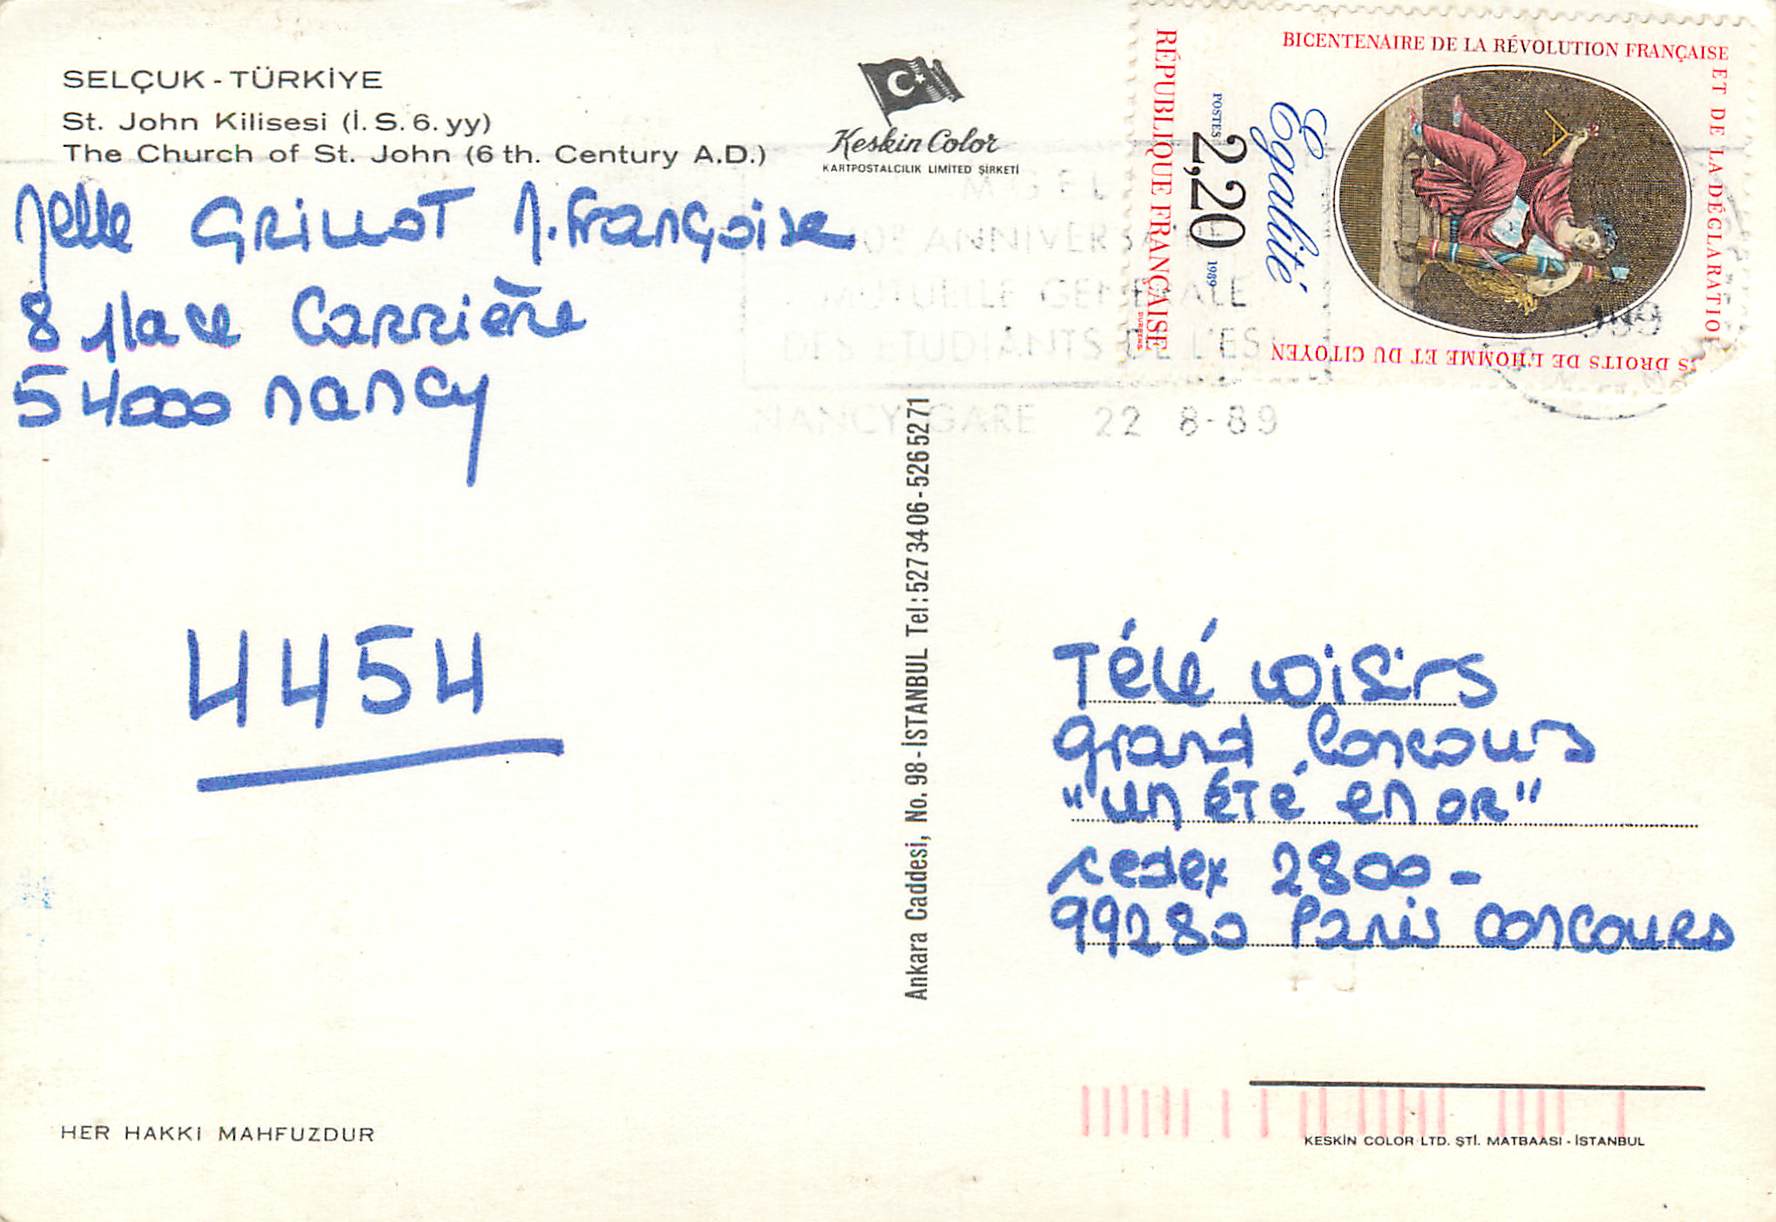 SELÇUK - TÜRKİYE
St. John Kilisesi (İ. S. 6. yy)
The Church of St. John (6 th. Century A.D.)
Keskin Color
KARTPOSTALCILIK LIMITED ŞİRKETİ
RÉPUBLIQUE FRANÇAISE
POSTES 2,20 1989
Égalité
DURRENS
BICENTENAIRE DE LA RÉVOLUTION FRANÇAISE
ET DE LA DÉCLARATION
DROITS DE L'HOMME ET DU CITOYEN
ANNIVERSAIRE
MUTUELLE GENERALE
DES ETUDIANTS DE L'EST
NANCY GARE 22 8-89
Melle GRILLOT M. Françoise
8 place Carrière
54000 NANCY
4454
Ankara Caddesi, No. 98 - İSTANBUL Tel: 527 34 06 - 526 52 71
Télé Loisirs
Grand Concours
"un été en or"
cedex 2800 -
99280 Paris concours
HER HAKKI MAHFUZDUR
KESKİN COLOR LTD. ŞTİ. MATBAASI - İSTANBUL